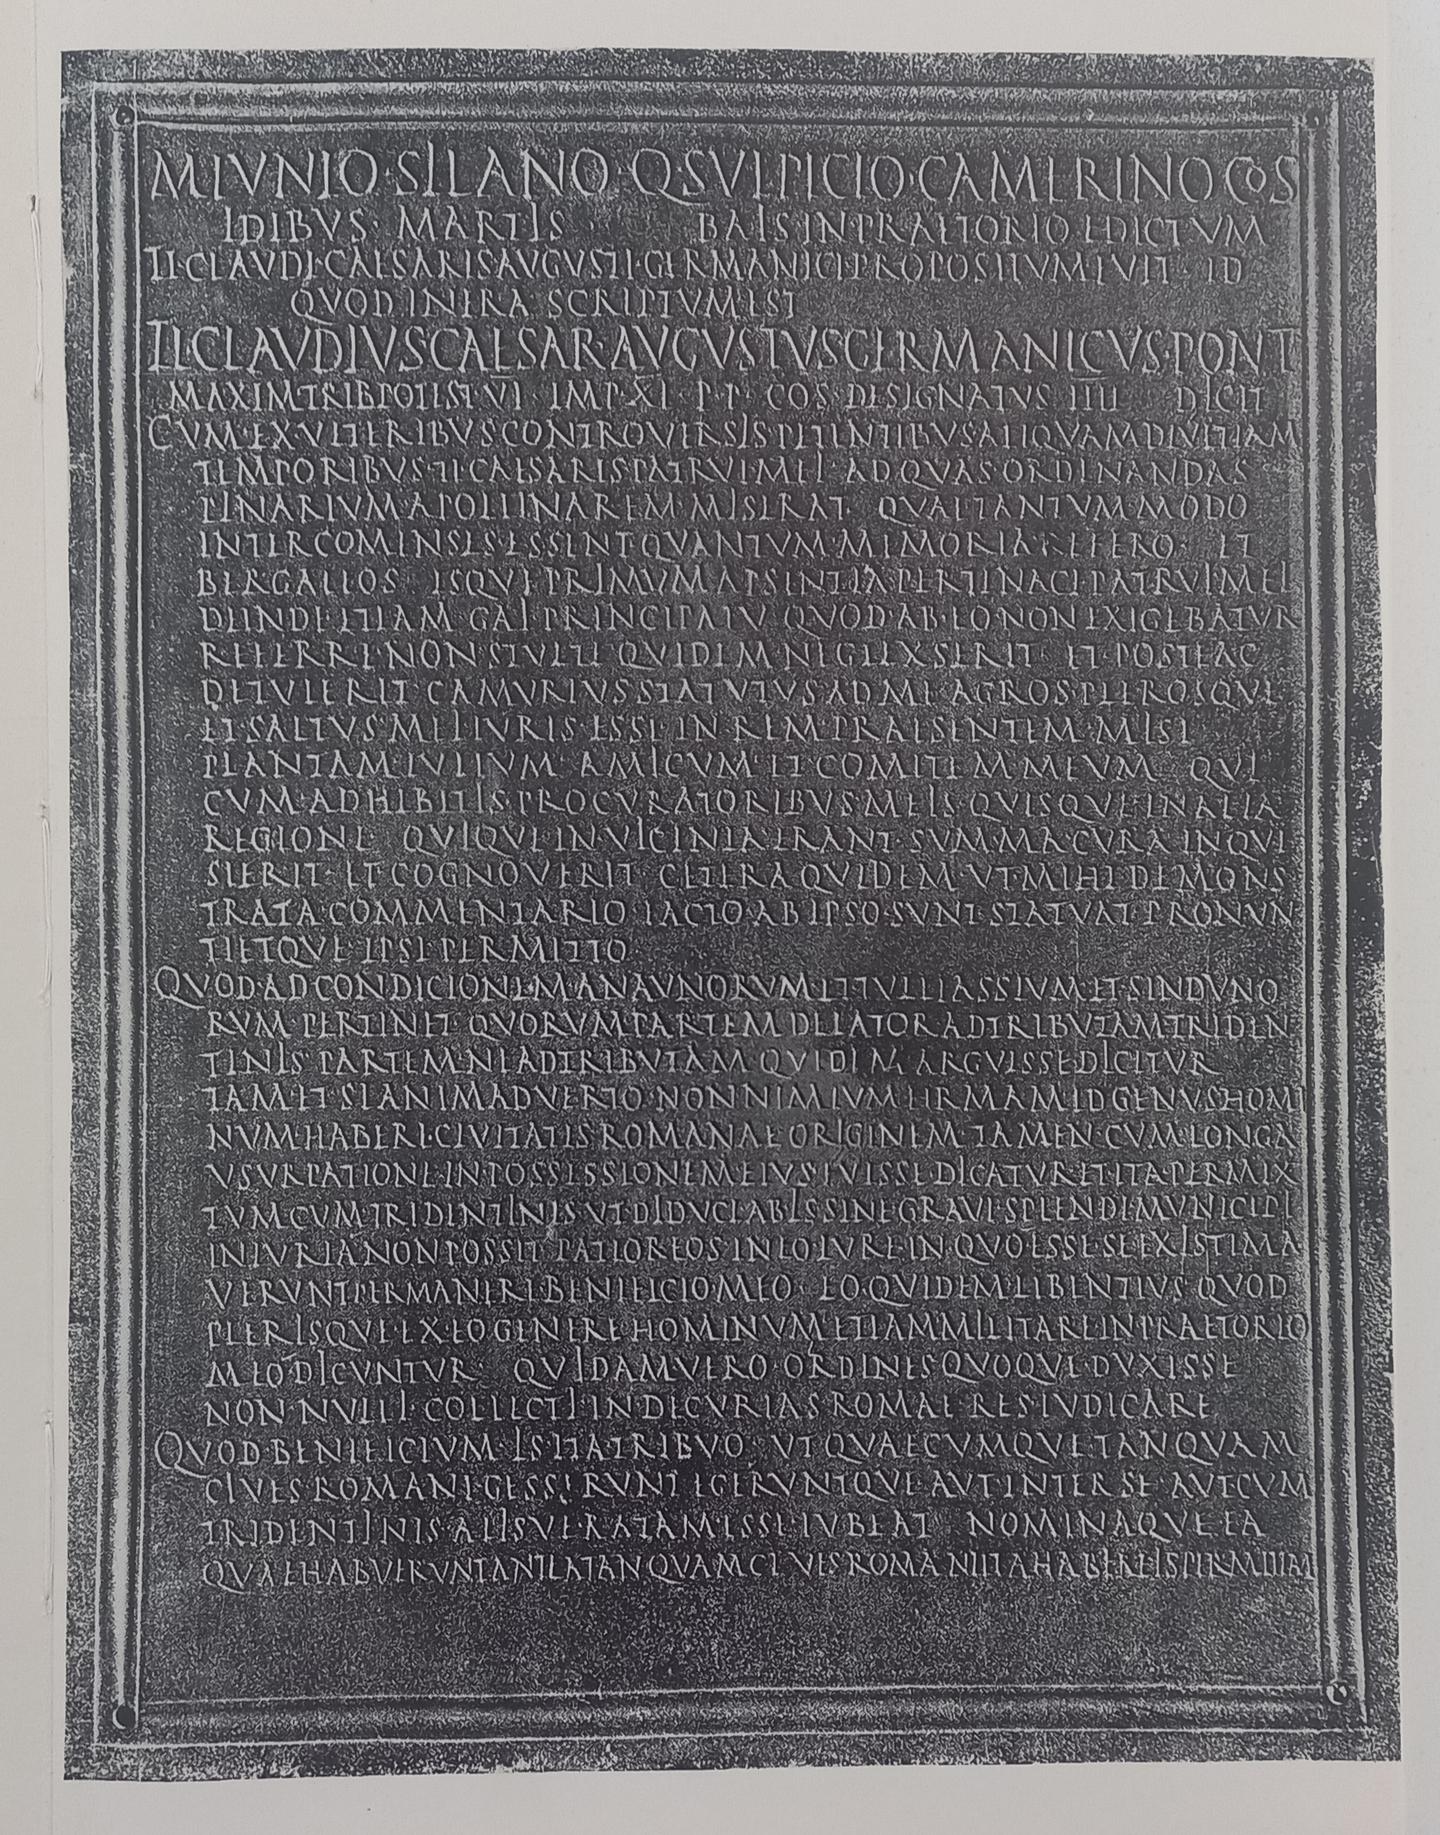 M·IVNIO·SILANO·Q·SVLPICIO·CAMERINO·COS
IDIBVS·MARTIS BAIS·IN·PRAETORIO·EDICTVM
TI·CLAVDI·CAESARIS·AVGVSTI·GERMANICI·PROPOSITVM·FVIT·ID
QVOD·INFRA·SCRIPTVM·EST
TI·CLAVDIVS·CAESAR·AVGVSTVS·GERMANICVS·PONT
MAXIM·TRIB·POTEST·VI·IMP·XI·P·P·COS·DESIGNATVS·IIII DICIT
CVM·EX·VETERIBVS·CONTROVERSIS·PETENTIBVS·ALIQVAMDIV·ETIAM
TEMPORIBVS·TI·CAESARIS·PATRVI·MEI·AD·QVAS·ORDINANDAS
PINARIVM·APOLLINAREM·MISERAT QVAE·TANTVM·MODO
INTER·COMENSES·ESSENT·QVANTVM·MEMORIA·REFERO·ET
BERGALEOS ISQVE·PRIMVM·APSENTIA·PERTINACI·PATRVI·MEI
DEINDE·ETIAM·GAI·PRINCIPATV QVOD·AB·EO·NON·EXIGEBATVR
REFERRE·NON·STVLTE QVIDEM·NEGLEXSERIT ET·POSTEAC
DETVLERIT·CAMVRIVS·STATVTVS·AD·ME·AGROS·PLEROSQVE
ET·SALTVS·MEI·IVRIS·ESSE·IN·REM·PRAESENTEM·MISI
PLANTAM·IVLIVM·AMICVM·ET·COMITEM·MEVM QVI
CVM·ADHIBITIS·PROCVRATORIBVS·MEIS·QVISQVE·IN·ALIA
REGIONE QVIQVE·IN·VICINIA·ERANT·SVMMA·CVRA·INQVI
SIERIT·ET·COGNOVERIT·CETERA·QVIDEM·VT·MIHI·DEMONS
TRATA·COMMENTARIO·FACTO·AB·IPSO·SVNT·STATVAT·PRONVN
TIETQVE·IPSI·PERMITTO
QVOD·AD·CONDICIONEM·ANAVNORVM·ET·TVLLIASSIVM·ET·SINDVNO
RVM·PERTINET·QVORVM·PARTEM·DELATOR·ADTRIBVTAM·TRIDEN
TINIS·PARTEM·NE·ADTRIBVTAM·QVIDEM ARGVISSE·DICITVR
TAM·ET·SI·ANIMADVERTO·NON·NIMIVM·FIRMAM·ID·GENVS·HOMI
NVM·HABERE·CIVITATIS·ROMANAE·ORIGINEM·TAMEN·CVM·LONGA
VSVRPATIONE·IN·POSSESSIONEM·EIVS·FVISSE·DICATVR·ET·ITA·PERMIX
TVM·CVM·TRIDENTINIS·VT·DIDVCI·AB·IS·SINE·GRAVI·SPLENDI·MVNICIPI
INIVRIA·NON·POSSIT·PATIOR·EOS·IN·EO·IVRE·IN·QVO·ESSE·SE·EXISTIMA
VERVNT·PERMANERE·BENIFICIO·MEO·EO·QVIDEM·LIBENTIVS·QVOD
PLERISQVE·EX·EO·GENERE·HOMINVM·ETIAM·MILITARE·IN·PRAETORIO
MEO·DICVNTVR QVIDAM·VERO·ORDINES·QVOQVE·DVXISSE
NON·NVLLI·COLLECTI·IN·DECVRIAS·ROMAE·RES·IVDICARE
QVOD·BENIFICIVM·IS·ITA·TRIBVO·VT·QVAECVMQVE·TANQVAM
CIVES·ROMANI·GESSERVNT·EGERVNTQVE·AVT·INTER·SE·AVT·CVM
TRIDENTINIS·ALISVE·RATAM·ESSE·IVBEAT NOMINAQVE·EA
QVAE·HABVERVNT·ANTEA·TANQVAM·CIVES·ROMANI·ITA·HABERE·IS·PERMITTAM